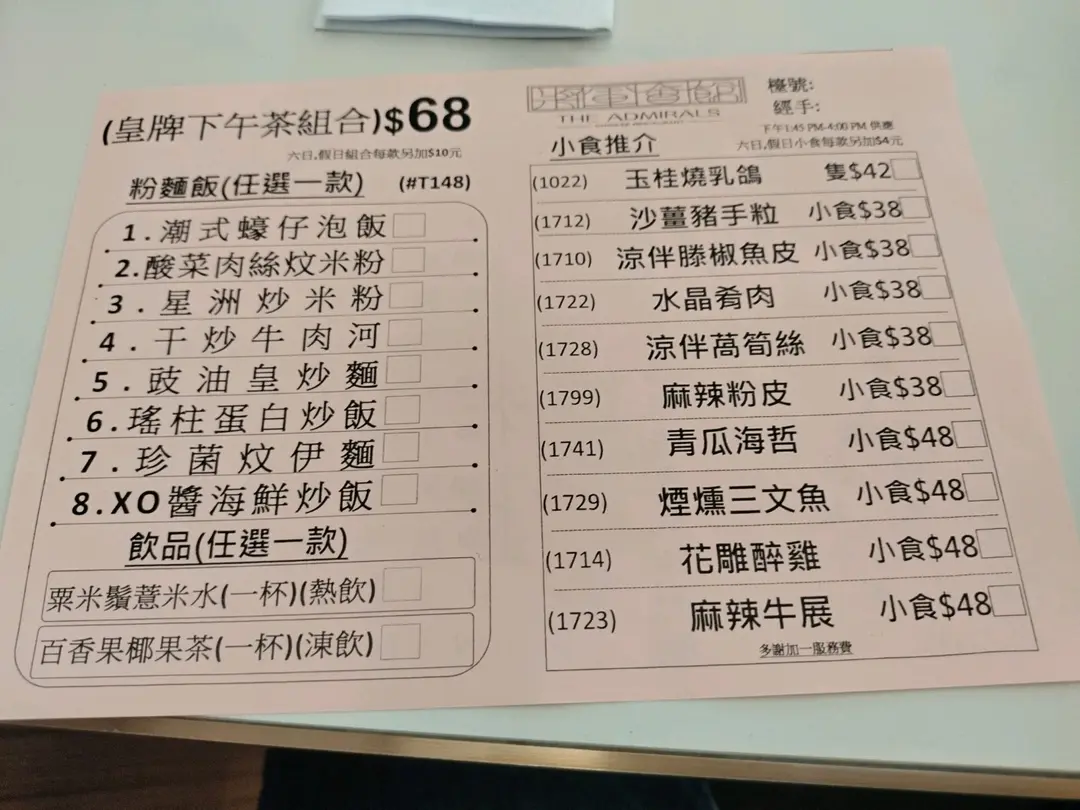 (皇牌下午茶組合)$68
六日,假日組合每款另加$10元
粉麵飯(任選一款) (#T148)
1.潮式蠔仔泡飯
2.酸菜肉絲炆米粉
3.星洲炒米粉
4.干炒牛肉河
5.豉油皇炒麵
6.瑤柱蛋白炒飯
7.珍菌炆伊麵
8.XO醬海鮮炒飯
飲品(任選一款)
粟米鬚薏米水(一杯)(熱飲)
百香果椰果茶(一杯)(凍飲)
將軍會館
THE ADMIRALS
檯號:
經手:
下午1:45 PM-4:00 PM 供應
小食推介
六日,假日小食每款另加$4元
(1022) 玉桂燒乳鴿 隻$42
(1712) 沙薑豬手粒 小食$38
(1710) 涼伴滕椒魚皮 小食$38
(1722) 水晶肴肉 小食$38
(1728) 涼伴萵筍絲 小食$38
(1799) 麻辣粉皮 小食$38
(1741) 青瓜海哲 小食$48
(1729) 煙燻三文魚 小食$48
(1714) 花雕醉雞 小食$48
(1723) 麻辣牛展 小食$48
多謝加一服務費